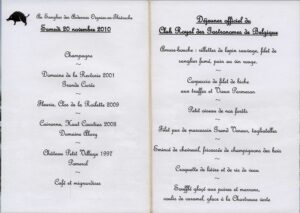 Au Sanglier des Ardennes Oignies-en-Thiérache
Samedi 20 novembre 2010
Champagne
~
Domaine de la Rectorie 2001
Grande Cuvée
~
Fleurie, Clos de la Roilette 2009
~
Cairanne, Haut Coustias 2003
Domaine Alary
~
Château Petit Village 1997
Pomerol
~
Café et mignardises
Déjeuner officiel du
Club Royal des Gastronomes de Belgique
Amuse-bouche : rillettes de lapin sauvage, filet de
sanglier fumé, pain au vin rouge.
~
Carpaccio de filet de biche
aux truffes et Vieux Parmesan
~
Petit oiseau de nos forêts
~
Filet pur de marcassin Grand Veneur, tagliatelles
~
Emincé de chevreuil, fricassée de champignons des bois
~
Croquette de lièvre et de ris de veau
~
Soufflé glacé aux poires et marrons,
coulis de caramel, glace à la Chartreuse verte